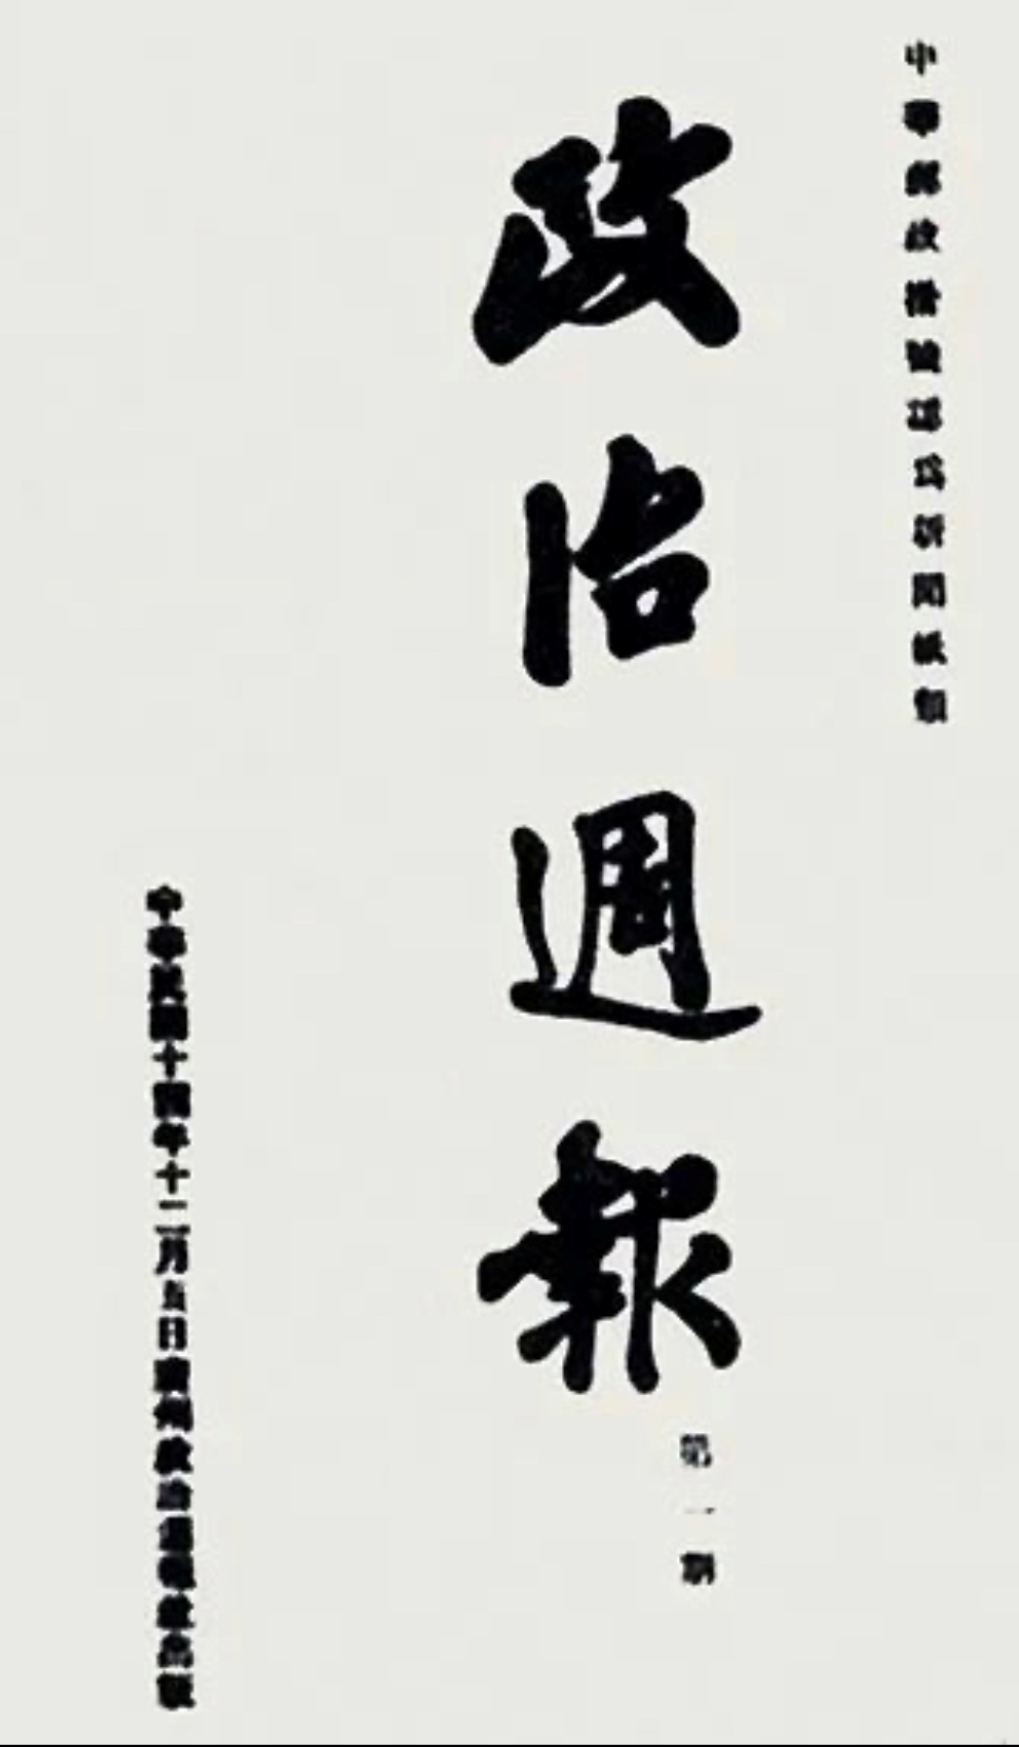 中華郵政掛號認爲新聞紙類
政治週報
第一期
中華民國十四年十二月五日廣州政治週報社出版